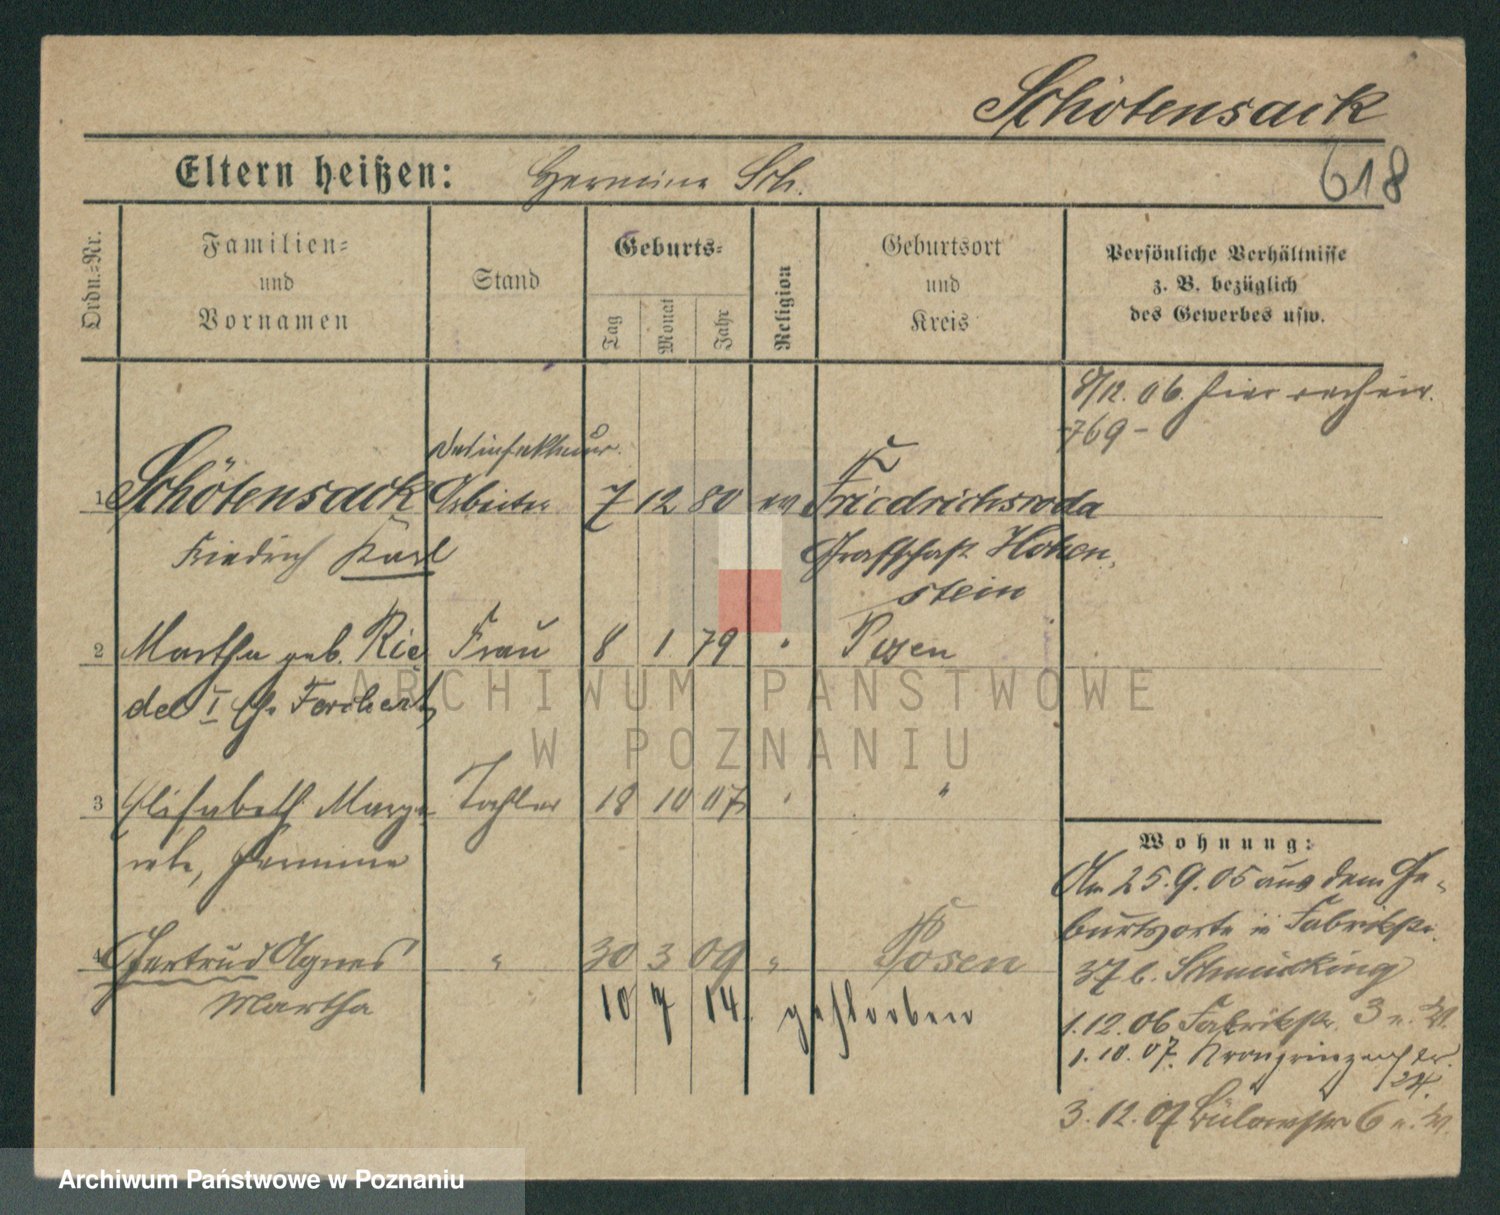 Schötensack
618
Eltern heißen: Hermine Sch.
Ordn.-Nr.
Familien-
und
Vornamen
Stand
Geburts-
Tag
Monat
Jahr
Religion
Geburtsort
und
Kreis
Persönliche Verhältnisse
z. B. bezüglich
des Gewerbes usw.
8/12. 06. hier
769-
Desinfekteur
1 Schötensack Arbeiter 7 12 80 ev Friedrichsroda
Friedrich Karl Grafschaft Hohen
stein
2 Martha geb. Rie Frau 8 1 79 " Posen
del I Eh. Ferchert
3 Elisabeth Marga Tochter 18 10 07 " "
rete, Hermine
4 Gertrud Agnes " 30 3 09 " Posen
Martha 10 7 14. gestorben
Wohnung:
Am 25.9.05 aus dem Ge-
burtsorte in Fabrikstr.
37 b. Schmücking
1.12.06 Fabrikstr. 3 n. W.
1.10.07. Kronprinzenstr.
24.
3.12.07 Bülowstr 6 n. W.
ARCHIWUM PAŃSTWOWE
W POZNANIU
Archiwum Państwowe w Poznaniu